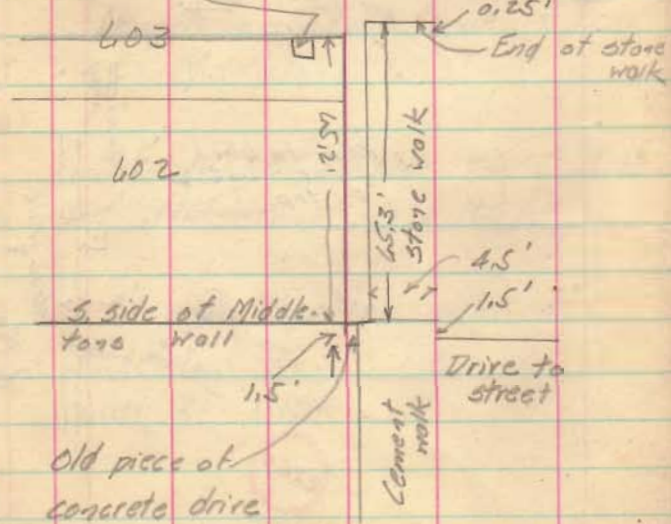 0.25'
End of stone
walk
603
602
65.3'
stone walk
4.5'
1.5'
S. side of Middle-
tons wall
1.5'
Drive to
street
Cement
walk
Old piece of
concrete drive